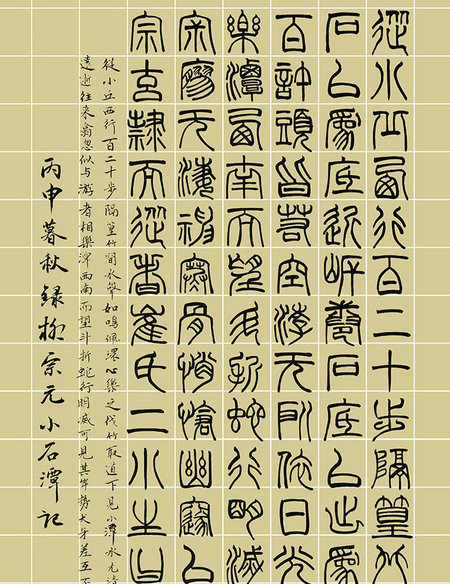 從小丘西行百二十步隔篁竹
石以為底近岸卷石底以出為
百許頭皆若空游无所依日光
樂潭西南而望斗折蛇行明滅
寂寥无凄神寒骨悄愴幽邃
宗玄隸而從者崔氏二小生曰
從小丘西行百二十步隔篁竹聞水聲如鳴佩環心樂之伐竹取道下見小潭水尤清
遠逝往来翕忽似与游者相樂潭西南而望斗折蛇行明滅可見其岸勢犬牙差互不
丙申暮秋錄柳宗元小石潭記